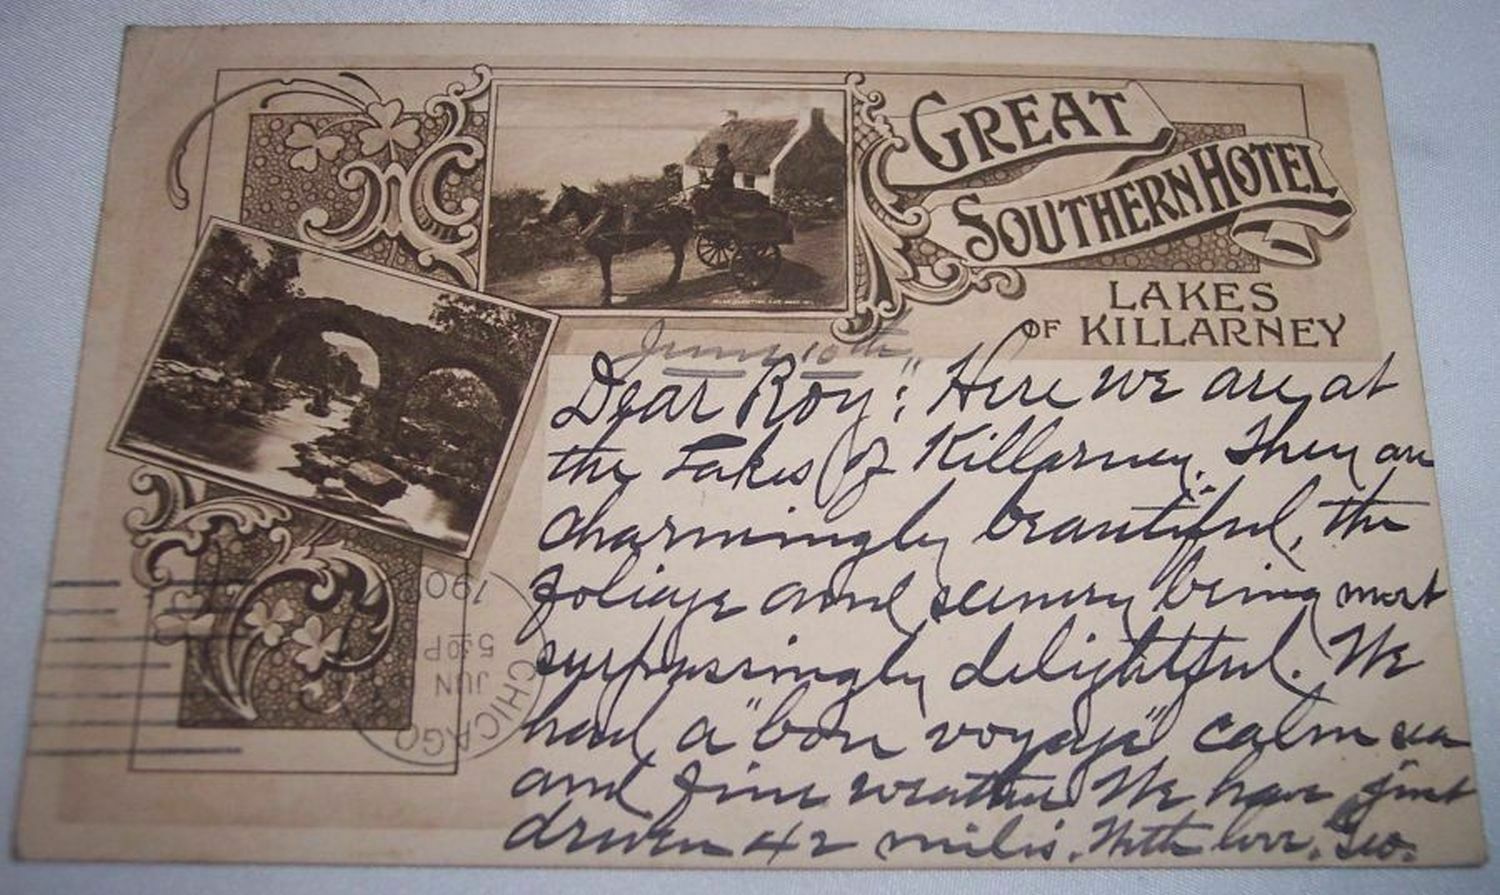 GREAT
SOUTHERN HOTEL
LAKES
OF KILLARNEY
June 10th
Dear Roy: Here we are at
the Lakes of Killarney. They are
charmingly beautiful, the
foliage and scenery being most
surpassingly delightful. We
had a "bon voyage" calm sea
and fine weather. We have just
driven 42 miles. With love, Geo.
CHICAGO
JUN
5 30P
190